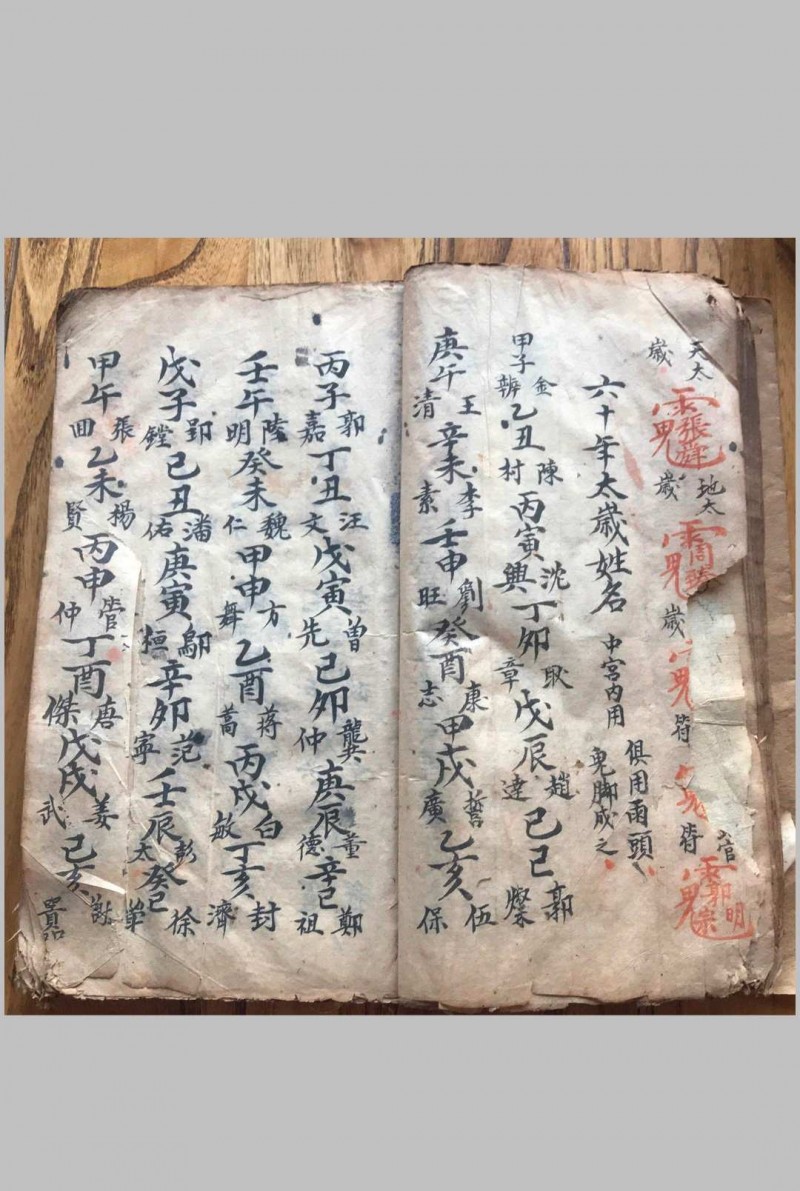 天太歲
張
地太歲
周
歲
符
符
官
郭明宗
六十年太歲姓名
中宮内用
俱用雨頭
鬼脚成之
甲子金辨乙丑陳村丙寅沈興丁卯耿章戊辰趙達己巳郭燦
庚午王清辛未李素壬申劉旺癸酉康志甲戌誓廣乙亥伍保
丙子郭嘉丁丑汪文戊寅曾先己卯龔仲庚辰董德辛巳鄭祖
壬午陸明癸未魏仁甲申方舞乙酉蒋蒿丙戌白敏丁亥封濟
戊子郢鏜己丑潘佑庚寅鄔桓辛卯范寧壬辰彭太癸巳徐单
甲午張田乙未楊賢丙申管仲丁酉唐傑戊戌姜武己亥